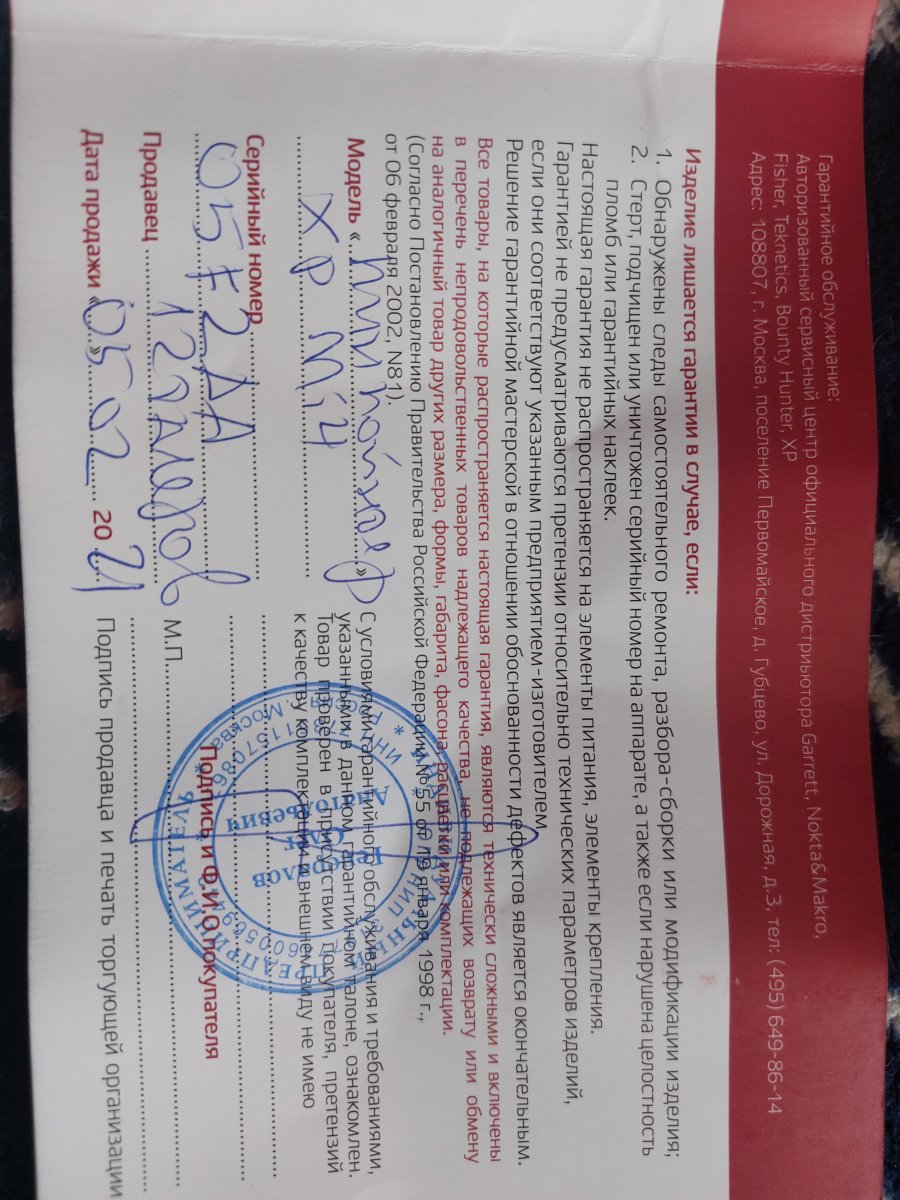 Гарантийное обслуживание:
Авторизованный сервисный центр официального дистриьютора Garrett, Nokta&Makro,
Fisher, Teknetics, Bounty Hunter, XP
Адрес: 108807, г. Москва, поселение Первомайское, д. Губцево, ул. Дорожная, д.3, тел: (495) 649-86-14
Изделие лишается гарантии в случае, если:
1. Обнаружены следы самостоятельного ремонта, разбора-сборки или модификации изделия;
2. Стерт, подчищен или уничтожен серийный номер на аппарате, а также если нарушена целостность
пломб или гарантийных наклеек.
Настоящая гарантия не распространяется на элементы питания, элементы крепления.
Гарантией не предусматриваются претензии относительно технических параметров изделий,
если они соответствуют указанным предприятием-изготовителем
Решение гарантийной мастерской в отношении обоснованности дефектов является окончательным.
Все товары, на которые распространяется настоящая гарантия, являются технически сложными и включены
в перечень непродовольственных товаров надлежащего качества, не подлежащих возврату или обмену
на аналогичный товар других размера, формы, габарита, фасона, расцветки или комплектации.
(Согласно Постановлению Правительства Российской Федерации №55 от 19 января 1998 г.,
от 06 февраля 2002, N81).
Модель «пинпойнтер»
XP Mi4
Серийный номер
05F2AA
Продавец
Дата продажи «05» 02 2021
С условиями гарантийного обслуживания и требованиями,
указанными в данном гарантийном талоне, ознакомлен.
Товар проверен в присутствии покупателя, претензий
к качеству комплектации и внешнему виду не имею
Подпись и Ф.И.О покупателя
М.П.
Подпись продавца и печать торгующей организации
Анатольевич
Москва